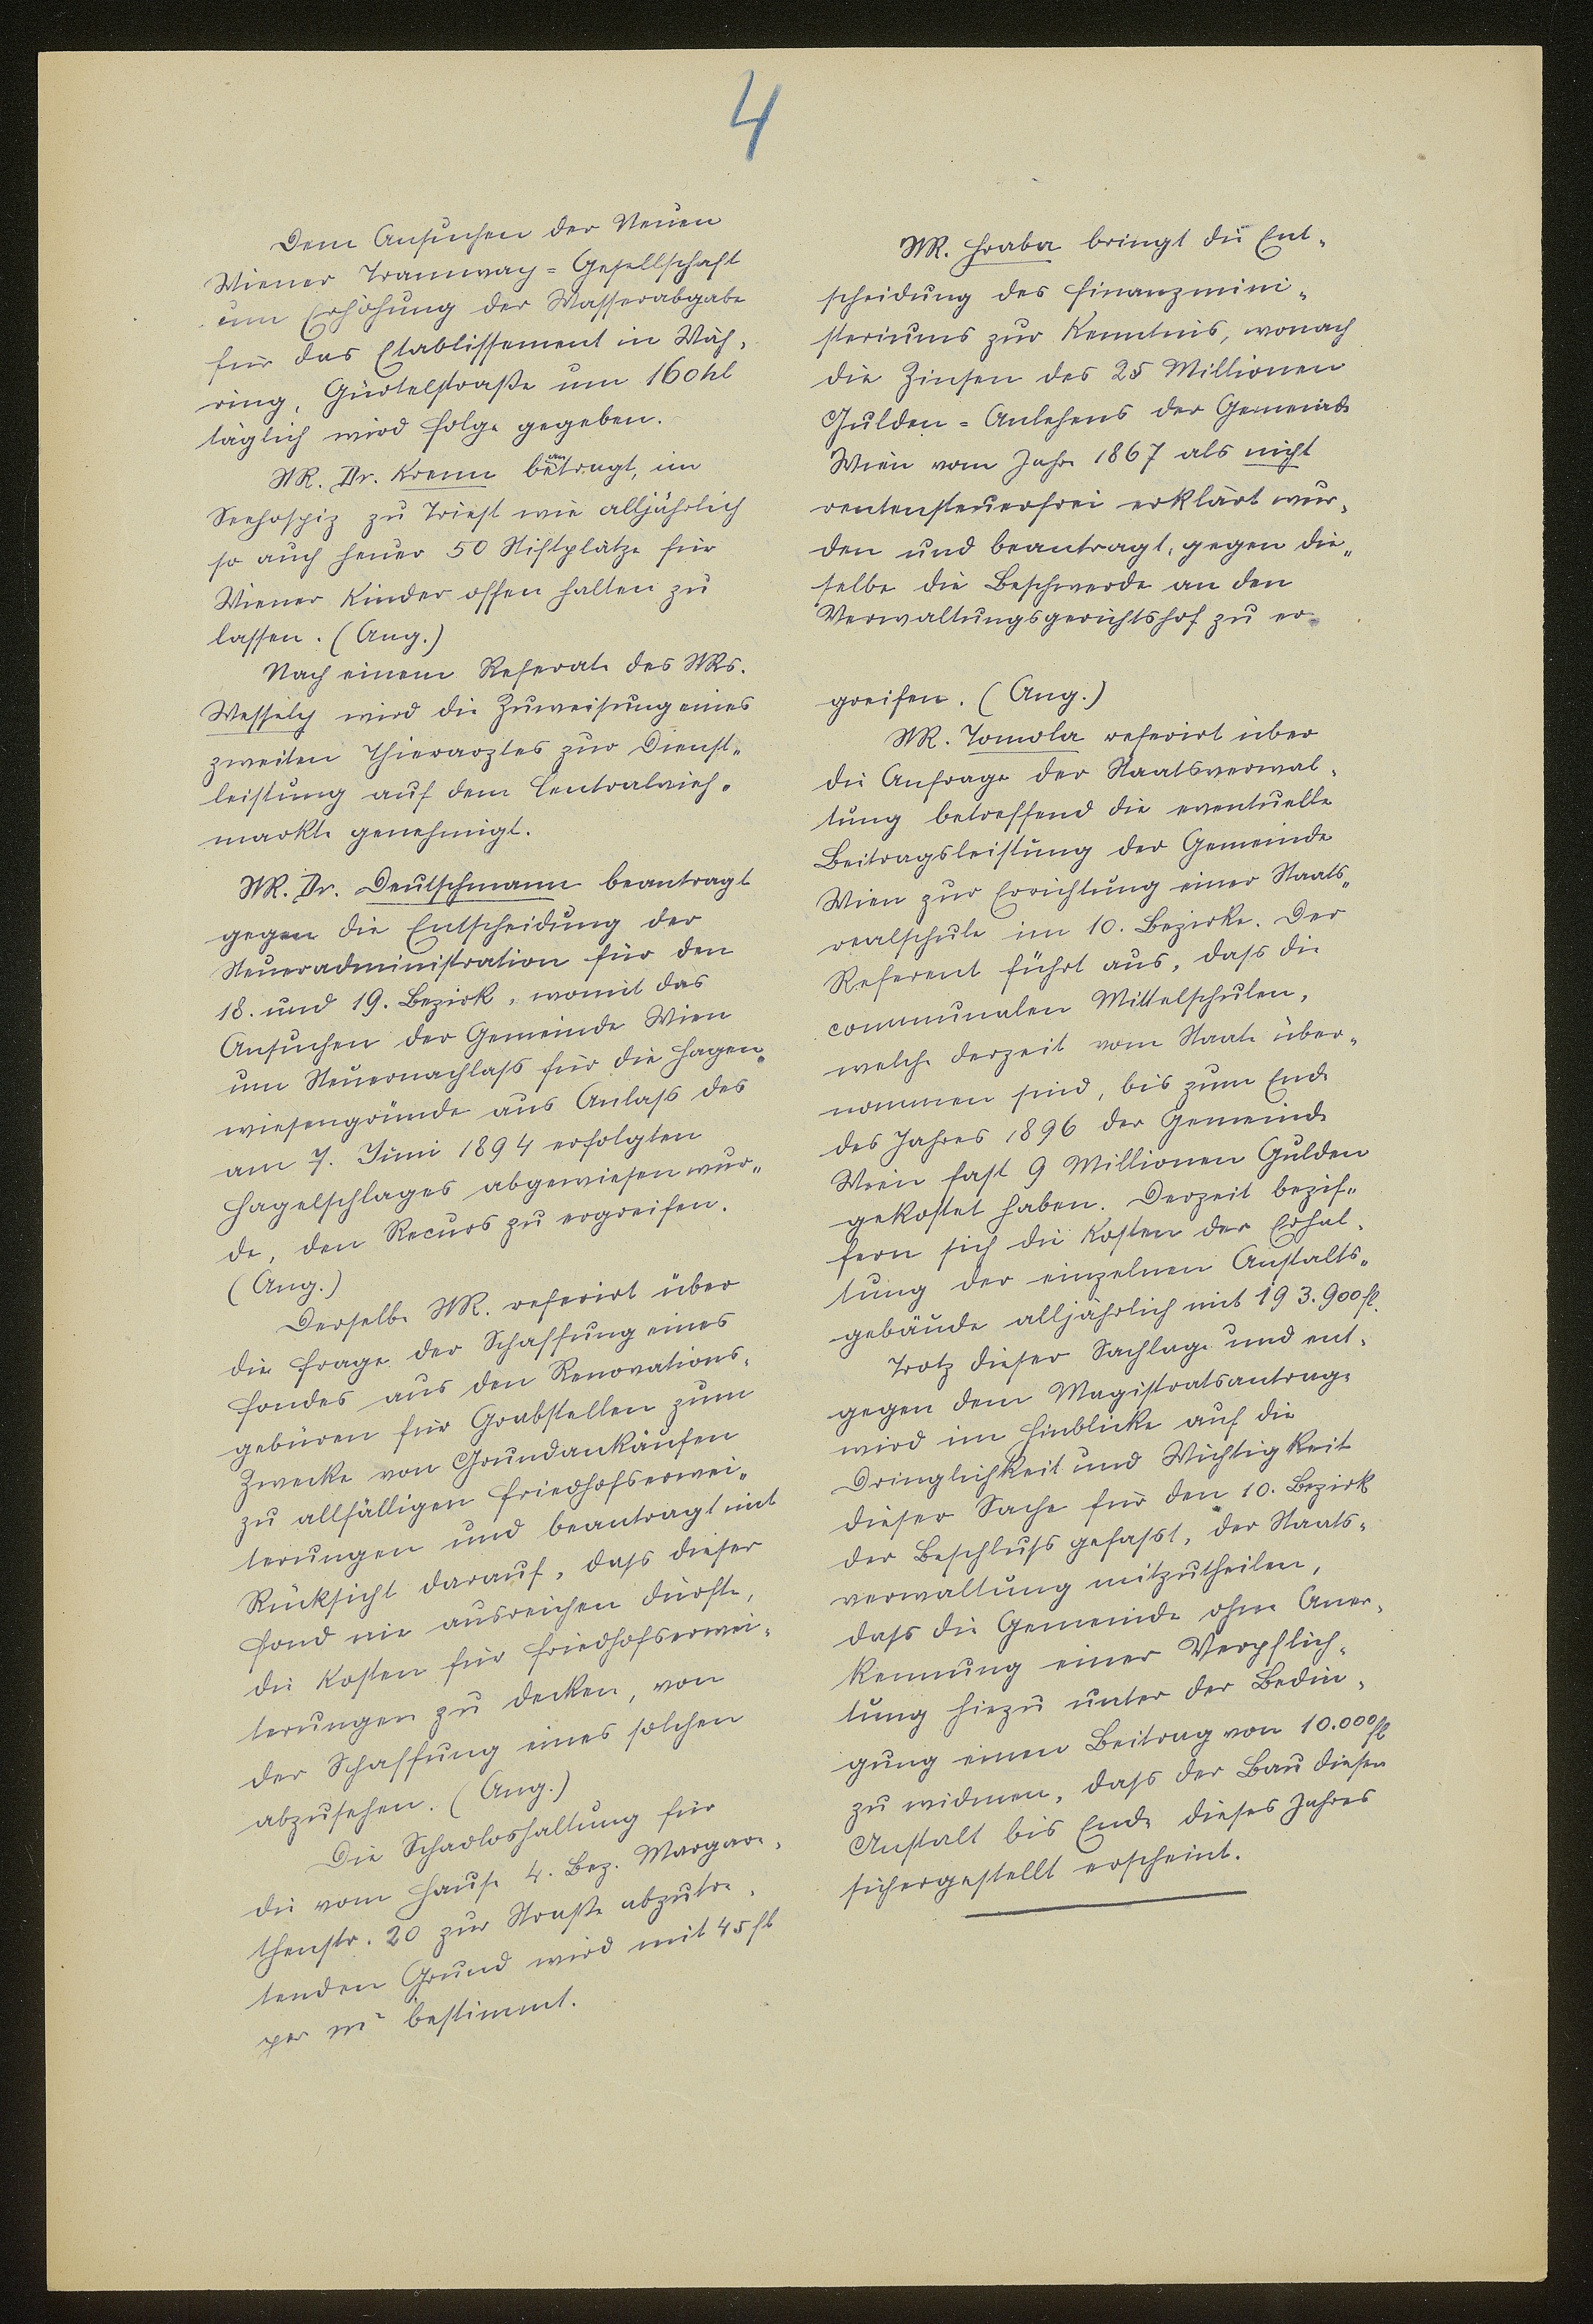 4
Dem Ansuchen der Neuen
Wiener Tramway-Gesellschaft
um Erhöhung der Wasserabgabe
für das Etablissement in Wäh-
ring, Gürtelstraße um 160 hl
täglich wird Folge gegeben.
StR. Dr. Krenn beantragt, im
Seehospiz zu Triest wie alljährlich
so auch heuer 50 Stiftplätze für
Wiener Kinder offen halten zu
lassen. (Ang.)
Nach einem Referate des StRs.
Wessely wird die Zuweisung eines
zweiten Thierarztes zur Dienst-
leistung auf dem Centralvieh-
markte genehmigt.
StR. Dr. Deutschmann beantragt
gegen die Entscheidung der
Steueradministration für den
18. und 19. Bezirk, womit das
Ansuchen der Gemeinde Wien
um Steuernachlass für die Hagen-
wiesengründe aus Anlass des
am 7. Juni 1894 erfolgten
Hagelschlages abgewiesen wur-
de, den Recurs zu ergreifen.
(Ang.)
Derselbe StR. referirt über
die Frage der Schaffung eines
Fondes aus den Renovations-
gebüren für Grabstellen zum
Zwecke von Grundankäufen
zu allfälligen Friedhofserwei-
terungen und beantragt mit
Rücksicht darauf, dass dieser
Fond nie ausreichen dürfte,
die Kosten für Friedhofserwei-
terungen zu decken, von
der Schaffung eines solchen
abzusehen. (Ang.)
Die Schadloshaltung für
die vom Hause 4. Bez. Margare-
thenstr. 20 zur Straße abzutre-
tenden Grund wird mit 45 fl
per m² bestimmt.
StR. Hraba bringt die Ent-
scheidung des Finanzmini-
steriums zur Kenntnis, wonach
die Zinsen des 25 Millionen
Gulden-Anlehens der Gemeinde
Wien vom Jahre 1867 als nicht
rentensteuerfrei erklärt wur-
den und beantragt, gegen die-
selbe die Beschwerde an den
Verwaltungsgerichtshof zu er-
greifen. (Ang.)
StR. Tomola referirt über
die Anfrage der Staatsverwal-
tung betreffend die eventuelle
Beitragsleistung der Gemeinde
Wien zur Errichtung einer Staats-
realschule im 10. Bezirke. Der
Referent führt aus, dass die
communalen Mittelschulen,
welche derzeit vom Staate über-
nommen sind, bis zum Ende
des Jahres 1896 der Gemeinde
Wien fast 9 Millionen Gulden
gekostet haben. Derzeit bezif-
fern sich die Kosten der Erhal-
tung der einzelnen Anstalts-
gebäude alljährlich mit 193.900 fl.
Trotz dieser Sachlage und ent-
gegen dem Magistratsantrage
wird im Hinblicke auf die
Dringlichkeit und Wichtigkeit
dieser Sache für den 10. Bezirk
der Beschluss gefasst, der Staats-
verwaltung mitzutheilen,
dass die Gemeinde ohne Aner-
kennung einer Verpflich-
tung hiezu unter der Bedin-
gung einen Beitrag von 10.000 fl
zu widmen, dass der Bau dieser
Anstalt bis Ende dieses Jahres
sichergestellt erscheint.